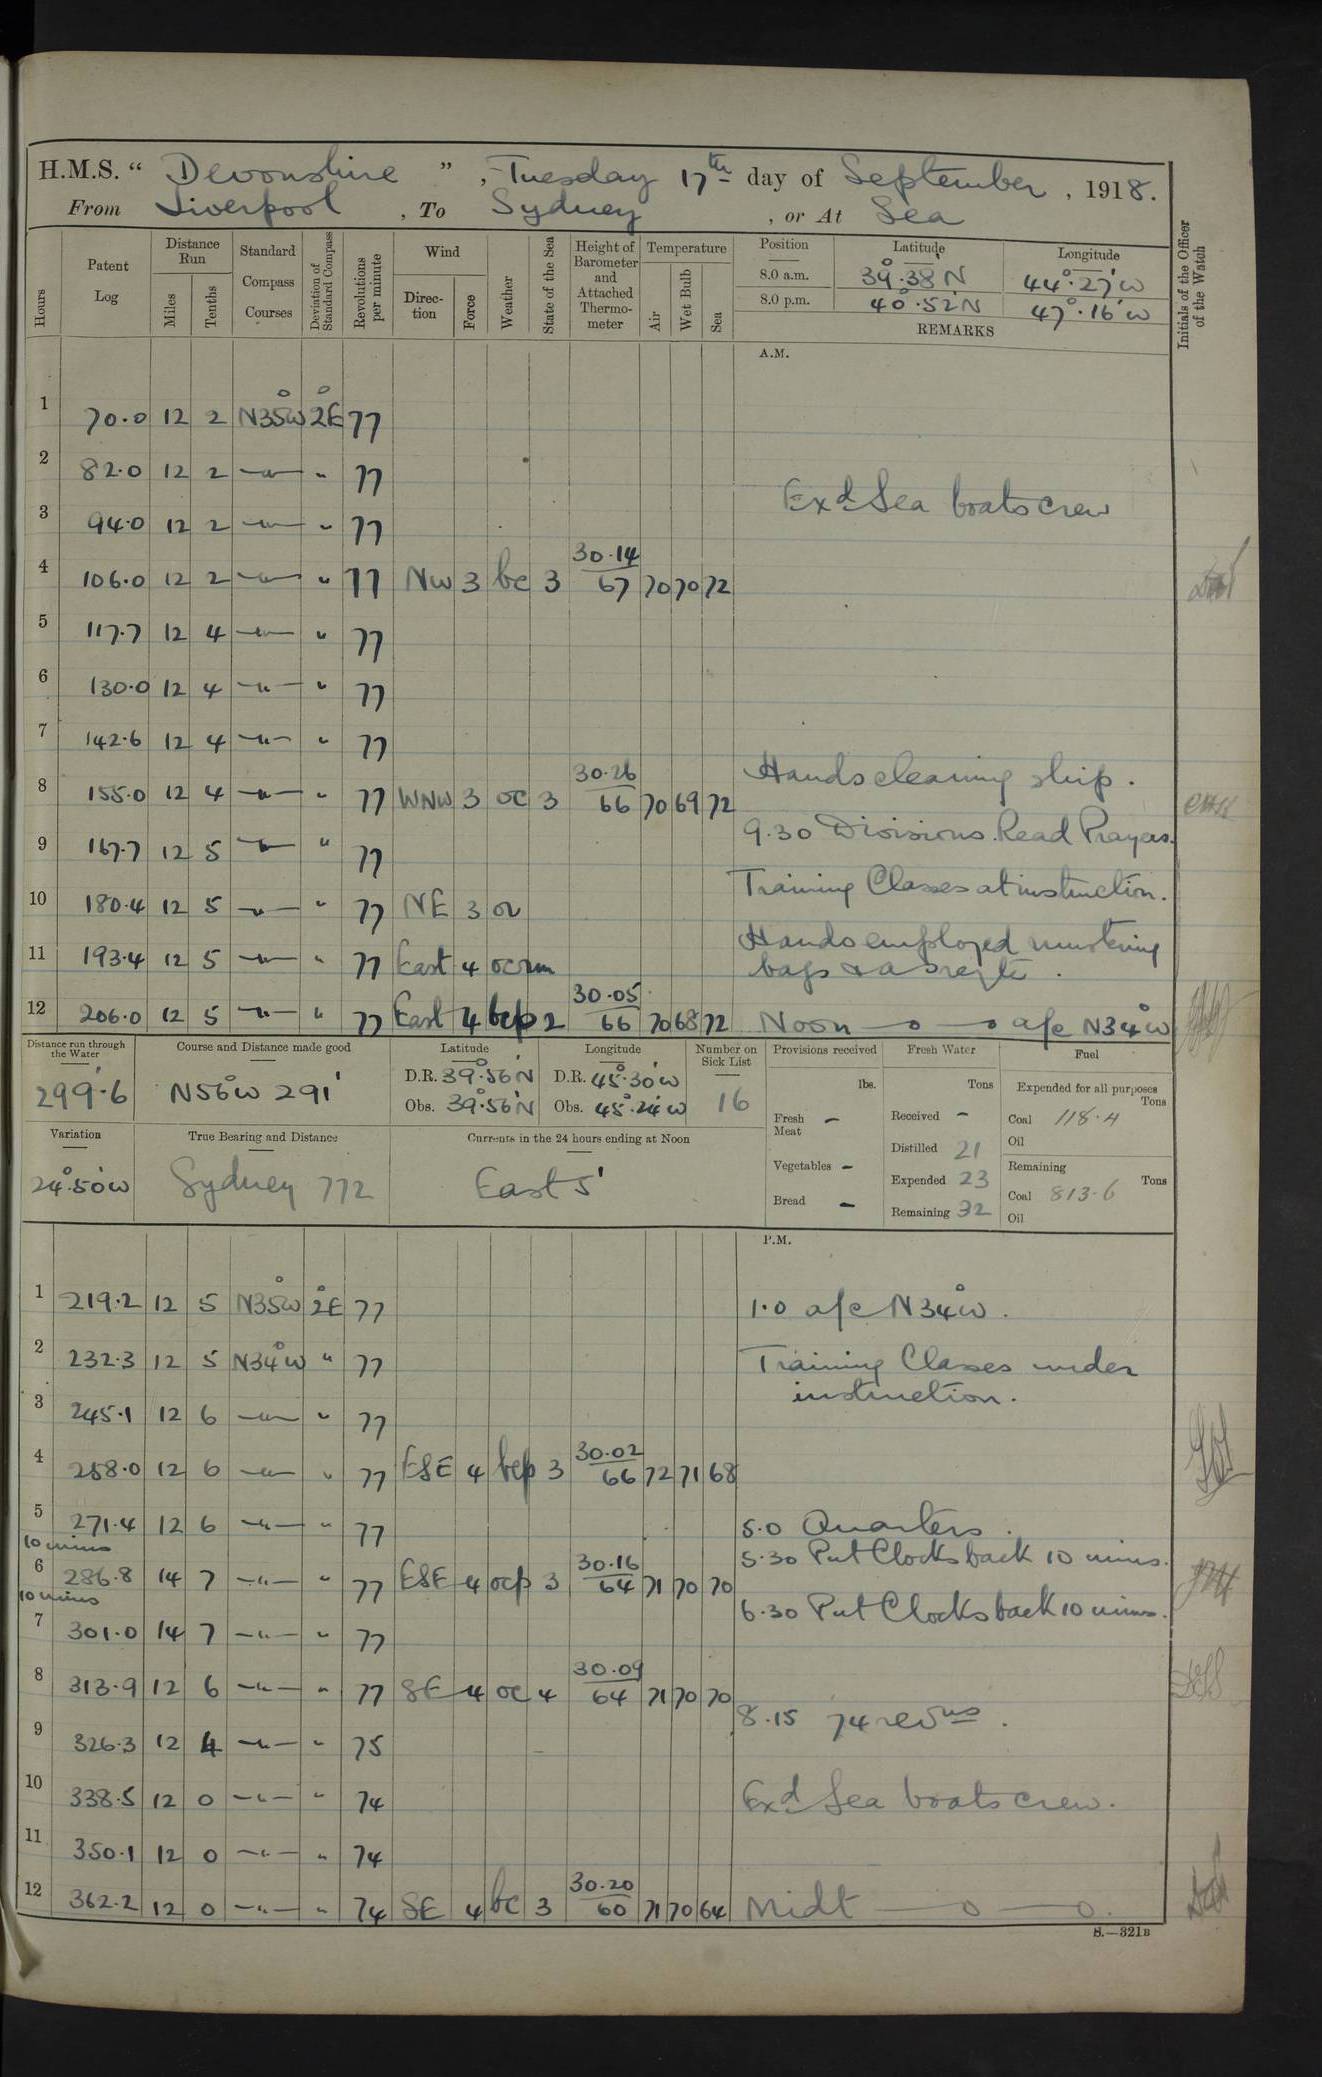 H.M.S. “ Devonshire ”, Tuesday 17th day of September, 1918.
From Liverpool, To Sydney, or At Sea
Hours
Patent Log
Distance Run
Miles
Tenths
Standard Compass Courses
Deviation of Standard Compass
Revolutions per minute
Wind
Direction
Force
Weather
State of the Sea
Height of Barometer and Attached Thermometer
Temperature
Air
Wet Bulb
Sea
Position
Latitude
Longitude
8.0 a.m. 39°.38' N 44°.27' W
8.0 p.m. 40°.52' N 47°.16' W
REMARKS
Initials of the Officer of the Watch
A.M.
1 70.0 12 2 N35°W 2°E 77
2 82.0 12 2 —"— " 77
Exd Sea boats crew
3 94.0 12 2 —"— " 77
4 106.0 12 2 —"— " 77 NW 3 bc 3 30.14 67 70 70 72
5 117.7 12 4 —"— " 77
6 130.0 12 4 —"— " 77
7 142.6 12 4 —"— " 77
Hands cleaning ship.
8 155.0 12 4 —"— " 77 WNW 3 oc 3 30.26 66 70 69 72
9.30 Divisions. Read Prayers.
9 167.7 12 5 —"— " 77
Training Classes at instruction.
10 180.4 12 5 —"— " 77 NE 3 or
Hands employed mustering
11 193.4 12 5 —"— " 77 East 4 ocrm
bags & as reqte.
12 206.0 12 5 —"— " 77 East 4 bcp 2 30.05 66 70 68 72 Noon —o—o a/c N34°W
Distance run through the Water
299'.6
Course and Distance made good
N56°W 291'
Latitude
D.R. 39°.56'N
Obs. 39°.56'N
Longitude
D.R. 45°.30'W
Obs. 45°.24'W
Number on Sick List
16
Provisions received
lbs.
Fresh Meat –
Vegetables –
Bread –
Fresh Water
Tons
Received –
Distilled 21
Expended 23
Remaining 32
Fuel
Expended for all purposes
Tons
Coal 118.4
Oil
Remaining
Tons
Coal 813.6
Oil
Variation
24°.50'W
True Bearing and Distance
Sydney 772
Currents in the 24 hours ending at Noon
East 5'
P.M.
1 219.2 12 5 N35°W 2°E 77 1.0 a/c N34°W.
2 232.3 12 5 N34°W " 77 Training Classes under
instruction.
3 245.1 12 6 —"— " 77
4 258.0 12 6 —"— " 77 ESE 4 bcp 3 30.02 66 72 71 68
5 271.4 12 6 —"— " 77 5.0 Quarters.
10 mins
5.30 Put Clocks back 10 mins.
6 286.8 14 7 —"— " 77 ESE 4 ocp 3 30.16 64 71 70 70
10 mins
6.30 Put Clocks back 10 mins.
7 301.0 14 7 —"— " 77
8 313.9 12 6 —"— " 77 SE 4 oc 4 30.09 64 71 70 70
8.15 74 revns.
9 326.3 12 4 —"— " 75
10 338.5 12 0 —"— " 74 Exd Sea boats crew.
11 350.1 12 0 —"— " 74
12 362.2 12 0 —"— " 74 SE 4 bc 3 30.20 60 71 70 64 Midt —o—o.
S.—321B